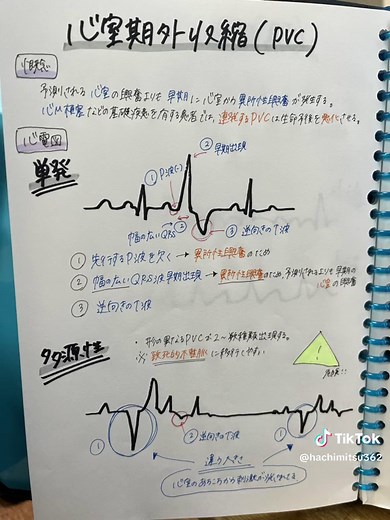 心室期外収縮(PVC)
概念
予測される心室の興奮よりも早期に心室から異所性興奮が発生する。
心筋梗塞などの基礎疾患を有する患者では、連発するPVCは生命予後を悪化させる。
心電図
単発
② 早期出現
① P波(-)
幅の広いQRS ②
③ 逆向きのT波
① 先行するP波を欠く → 異所性興奮のため
② 幅の広いQRS波早期出現 → 異所性興奮のため、予測されるよりも早期の
心室の興奮
③ 逆向きのT波
多源性
・形の異なるPVCが2〜数種類出現する。
※ 致死的不整脈に移行しやすい
!
注意!!
①
② 逆向きのT波
①
違う大きさ
心室のあちこちから刺激が
TikTok
@hachimitsu362